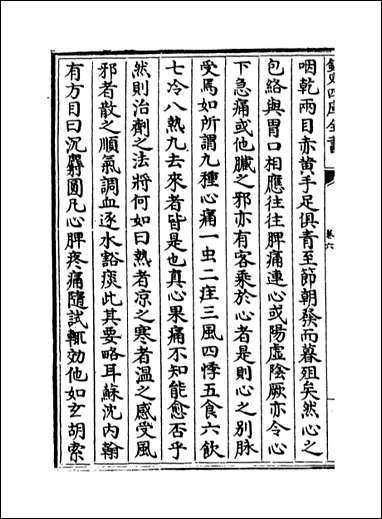 欽定四庫全書
卷六
咽乾兩目亦黄手足俱青至節朝發而暮殂矣然心之
包絡與胃口相應往往脾痛連心或陽虛陰厥亦令心
下急痛或他臟之邪亦有客乘於心者是則心之别脉
受焉如所謂九種心痛一虫二疰三風四悸五食六飲
七冷八熱九去來者皆是也真心果痛不知能愈否乎
然則治劑之法將何如曰熱者凉之寒者温之感受風
邪者散之順氣調血逐水豁痰此其要略耳蘇沈内翰
有方目曰沉麝圓凡心脾疼痛隨試輒効他如玄胡索